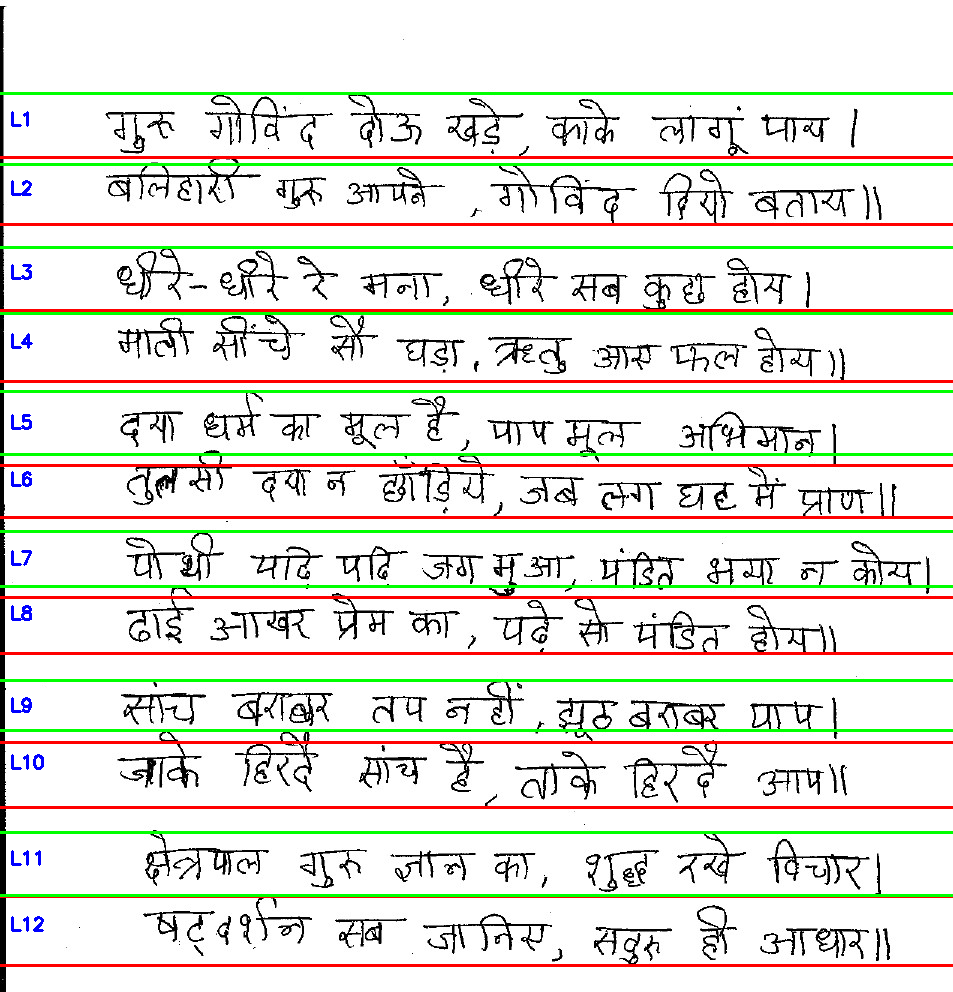 L1 गुरु गोविंद दोऊ खड़े, काके लागूं पाय।
L2 बलिहारी गुरु आपने, गोविंद दियो बताय॥
L3 धीरे-धीरे रे मना, धीरे सब कुछ होय।
L4 माली सींचे सौ घड़ा, ऋतु आए फल होय॥
L5 दया धर्म का मूल है, पाप मूल अभिमान।
L6 तुलसी दया न छाँड़िये, जब लग घट में प्राण॥
L7 पोथी पढि पढि जग मुआ, पंडित भया न कोय।
L8 ढाई आखर प्रेम का, पढ़े सो पंडित होय॥
L9 सांच बराबर तप नहीं, झूठ बराबर पाप।
L10 जाके हिरदै सांच है, ताके हिरदै आप॥
L11 क्षेत्रपाल गुरु ज्ञान का, शुद्ध रखे विचार।
L12 षट्दर्शन सब जानिए, सद्गुरु ही आधार॥